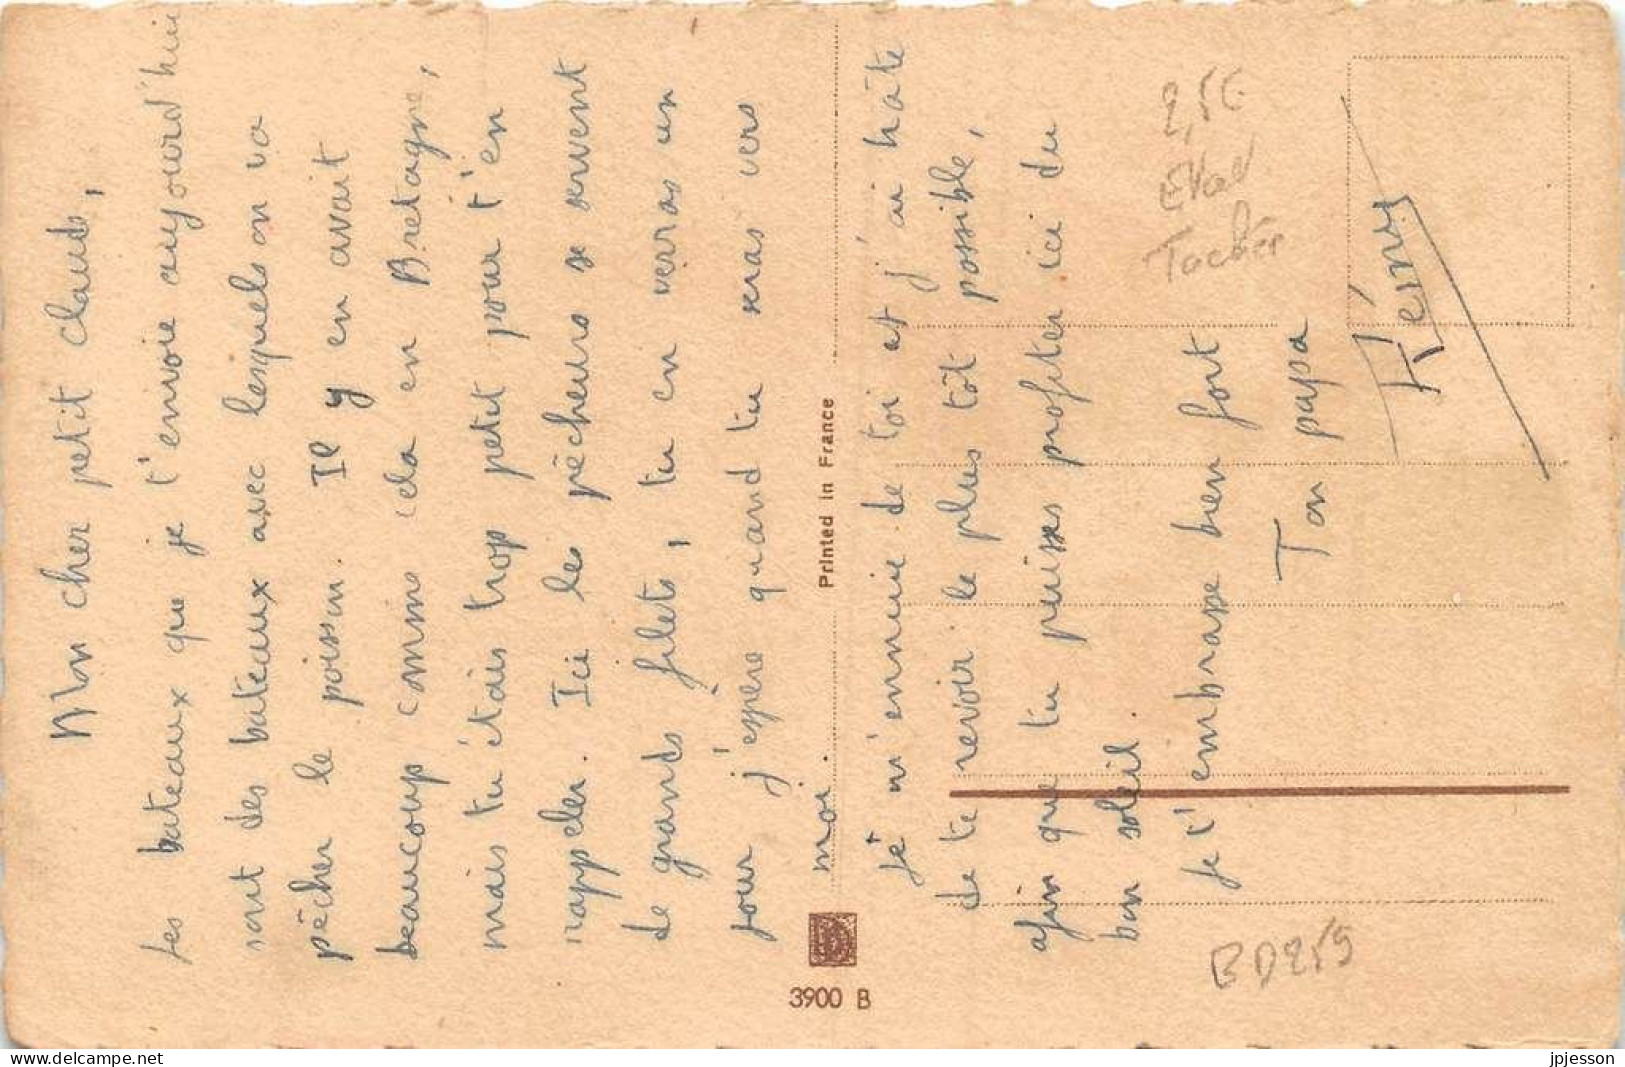 Mon cher petit claude,
Les bateaux que je t'envoie aujourd'hui
sont des bateaux avec lesquels on va
pêcher le poisson. Il y en avait
beaucoup comme cela en Bretagne,
mais tu étais trop petit pour t'en
rappeler. Ici les pêcheurs se servent
de grands filets, tu en verras un
jour j'espère quand tu seras vers
moi.
Je m'ennuie de toi et j'ai hâte
de te revoir le plus tôt possible,
afin que tu puisses profiter ici du
bon soleil.
Je t'embrasse bien fort
Ton papa
Rémy
Printed in France
3900 B
2,5€
BD259
jpjesson
www.delcampe.net